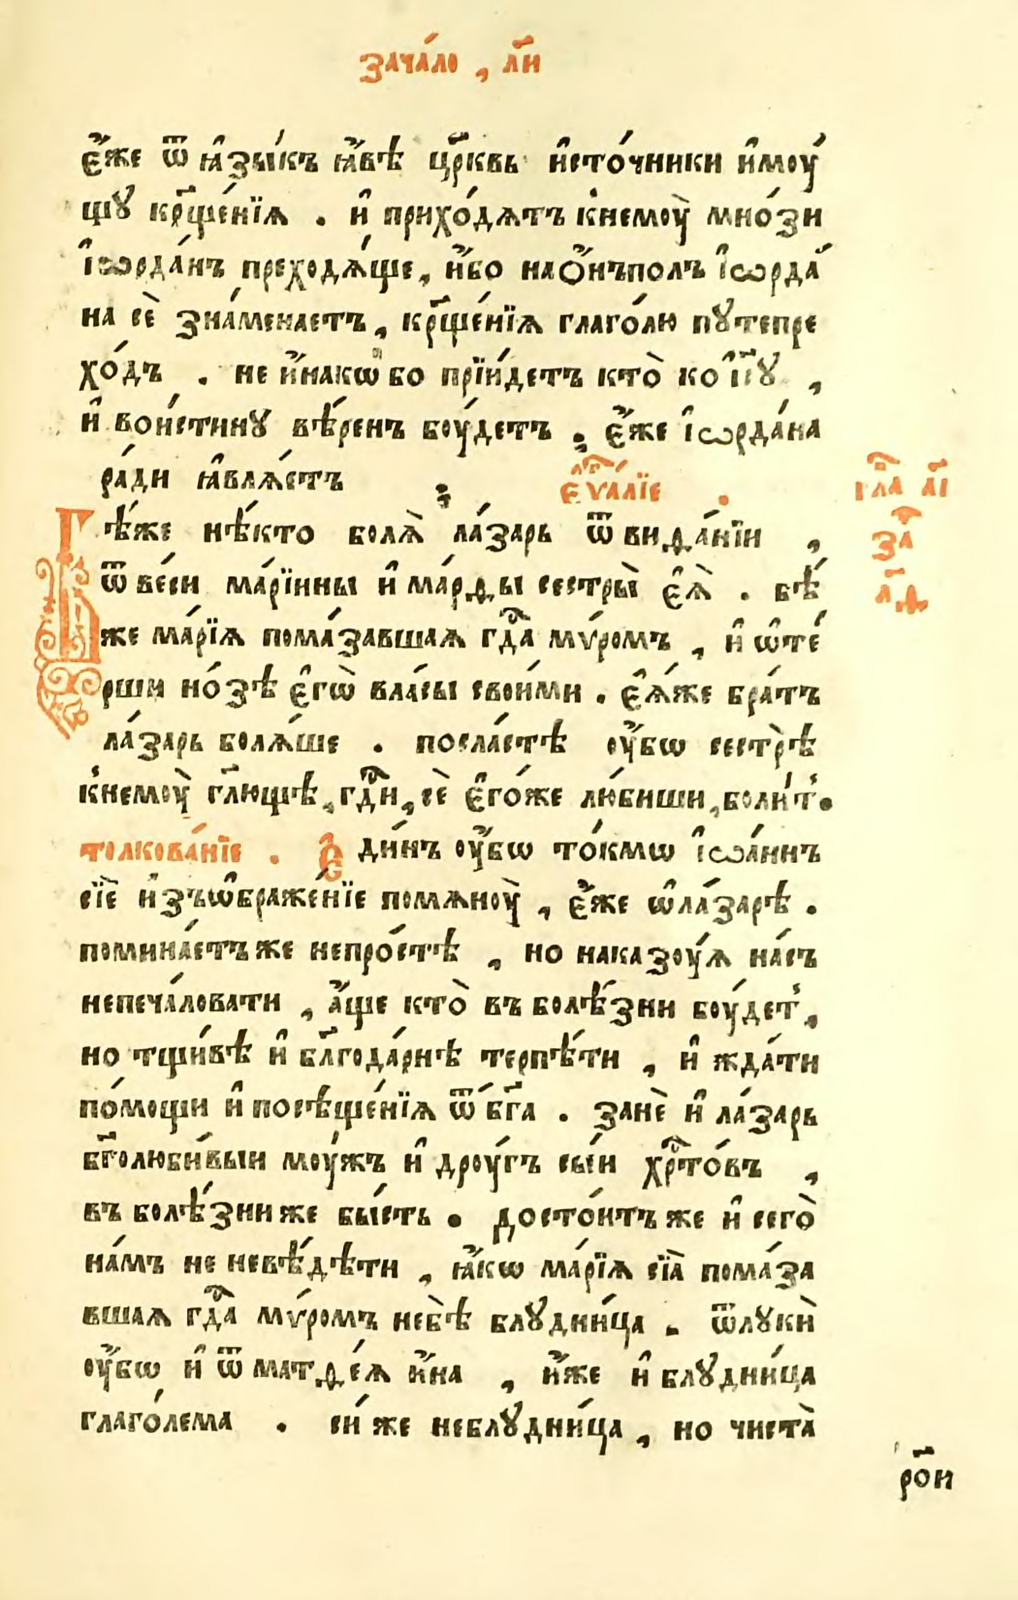 зача́ло , л҃и
є҆́же ѿ ꙗ҆зы́къ ꙗ҆́вѣ цр҃квь и҆сто́чники и҆моу́
щꙋ кр҃ще́нїѧ . и҆ прихо́дѧтъ к̾немоу̀ мно́зи
і҆ѡрда́нъ преходѧ́ще , и҆́бо на ѻ҆́нъполъ і҆ѡрда́
на сѐ зна́менаетъ , кр҃ще́нїѧ глаго́лю пꙋтепре
хо́дъ . не и҆́накѡ бо прїи́детъ кто̀ ко і҆с҃ꙋ ,
и҆ вои́стинꙋ вѣ́ренъ боу́детъ , є҆́же і҆ѡрда́на
ра́ди ꙗ҆влѧ́етъ
є҆ѵа́лїе .
гл҃а а҃і
за
л҃ѳ
Бѣ́же нѣ́кто болѧ̀ ла́зарь ѿ виѳа́нїи ,
ѿ ве́си марі́инны и҆ ма́рѳы сестры̀ є҆ѧ̀ . бѣ́
же марі́ѧ пома́завшаѧ гд҃а мѵ́ромъ , и҆ ѡ҆те́
рши но́зѣ є҆гѡ̀ власы̀ свои́ми . є҆ѧ́же бра́тъ
ла́зарь болѧ́ше . посла́стѣ оу҆́бѡ сестрѣ̀
к̾немоу̀ гл҃ющѣ , гд҃и , сѐ є҆го́же лю́биши , боли́т̾ .
толкова́нїе . Є҆ди́нъ оу҆́бѡ то́кмѡ і҆ѡа́ннъ
сїѐ и҆зъѡ҆браже́нїе помѧноу̀ , є҆́же ѡ҆ ла́зарѣ .
помина́етъ же непро́стѣ , но наказоу́ѧ на́съ
непеча́ловати , а҆́ще кто̀ въ болѣ́зни боу́дет̾ ,
но тщи́вѣ и҆ бл҃года́рнѣ терпѣ́ти , и҆ жда́ти
по́мощи и҆ посѣще́нїѧ ѿ бг҃а . занѐ и҆ ла́зарь
бг҃олюби́выи моу́жъ и҆ дроу́гъ сы́и хр҃то́въ ,
въ болѣ́зни же бы́сть . досто́итъ же и҆ сего̀
на́мъ не невѣ́дѣти , ꙗ҆́кѡ марі́ѧ сїа̀ пома́за
вшаѧ гд҃а мѵ́ромъ небѣ̀ блꙋдни́ца . ѿ лꙋкѝ
оу҆́бѡ и҆ ѿ матѳе́ѧ и҆́на , и҆́же и҆ блꙋдни́ца
глаго́лема . сі́и же неблꙋдни́ца , но чиста̀
р҃ои